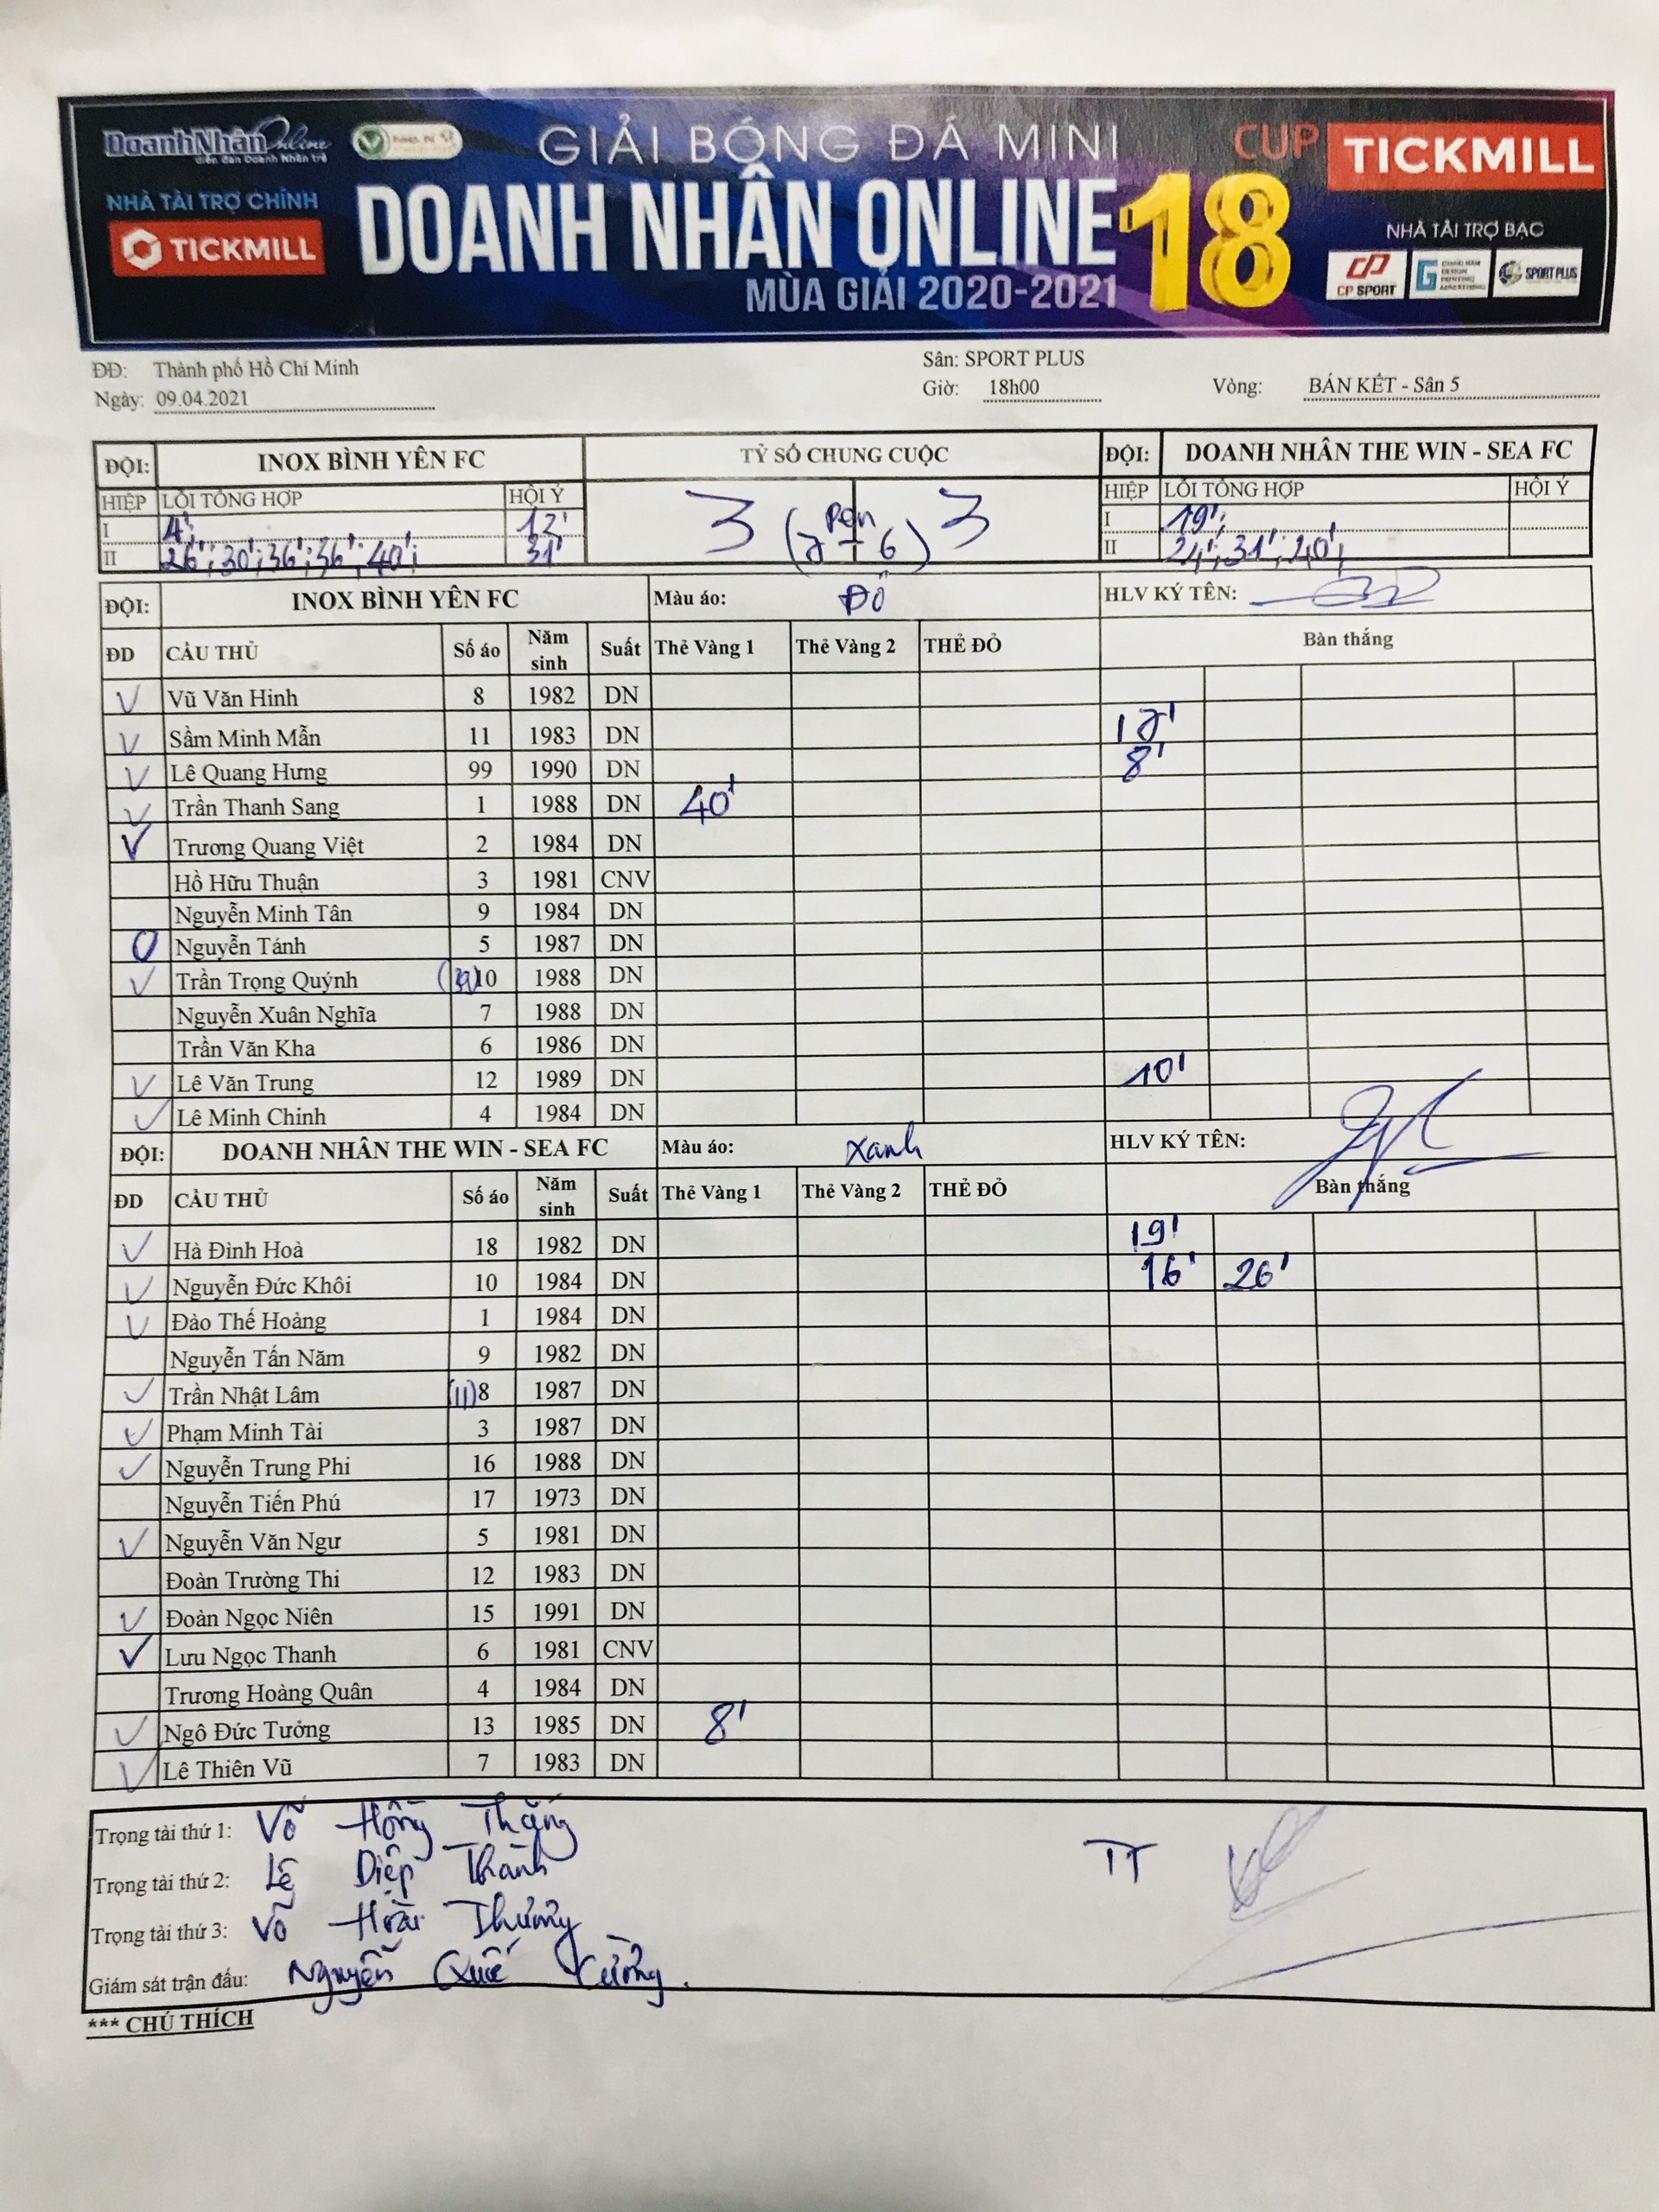 DoanhNhân Online
diễn đàn Doanh Nhân trẻ
GIẢI BÓNG ĐÁ MINI
CUP TICKMILL
NHÀ TÀI TRỢ CHÍNH
TICKMILL
DOANH NHÂN ONLINE 18
MÙA GIẢI 2020-2021
NHÀ TÀI TRỢ BẠC
CP SPORT
SPORT PLUS
ĐĐ: Thành phố Hồ Chí Minh Sân: SPORT PLUS
Ngày: 09.04.2021 Giờ: 18h00 Vòng: BÁN KẾT - Sân 5
ĐỘI: INOX BÌNH YÊN FC TỶ SỐ CHUNG CUỘC ĐỘI: DOANH NHÂN THE WIN - SEA FC
HIỆP LỖI TỔNG HỢP HỘI Ý HIỆP LỖI TỔNG HỢP HỘI Ý
I 4'; 12' 3 (pen 7 - 6) 3 I 19';
II 26'; 30'; 36'; 36'; 40'; 31' II 24'; 31'; 40';
ĐỘI: INOX BÌNH YÊN FC Màu áo: Đỏ HLV KÝ TÊN:
ĐD CẦU THỦ Số áo Năm sinh Suất Thẻ Vàng 1 Thẻ Vàng 2 THẺ ĐỎ Bàn thắng
Vũ Văn Hinh 8 1982 DN
Sầm Minh Mẫn 11 1983 DN 17'
Lê Quang Hưng 99 1990 DN 8'
Trần Thanh Sang 1 1988 DN 40'
Trương Quang Việt 2 1984 DN
Hồ Hữu Thuận 3 1981 CNV
Nguyễn Minh Tân 9 1984 DN
Nguyễn Tánh 5 1987 DN
Trần Trọng Quýnh 10 1988 DN
Nguyễn Xuân Nghĩa 7 1988 DN
Trần Văn Kha 6 1986 DN
Lê Văn Trung 12 1989 DN 10'
Lê Minh Chinh 4 1984 DN
ĐỘI: DOANH NHÂN THE WIN - SEA FC Màu áo: Xanh HLV KÝ TÊN:
ĐD CẦU THỦ Số áo Năm sinh Suất Thẻ Vàng 1 Thẻ Vàng 2 THẺ ĐỎ Bàn thắng
Hà Đình Hoà 18 1982 DN 19'
Nguyễn Đức Khôi 10 1984 DN 16' 26'
Đào Thế Hoàng 1 1984 DN
Nguyễn Tấn Năm 9 1982 DN
Trần Nhật Lâm (11) 8 1987 DN
Phạm Minh Tài 3 1987 DN
Nguyễn Trung Phi 16 1988 DN
Nguyễn Tiến Phú 17 1973 DN
Nguyễn Văn Ngư 5 1981 DN
Đoàn Trường Thi 12 1983 DN
Đoàn Ngọc Niên 15 1991 DN
Lưu Ngọc Thanh 6 1981 CNV
Trương Hoàng Quân 4 1984 DN
Ngô Đức Tưởng 13 1985 DN 8'
Lê Thiên Vũ 7 1983 DN
Trọng tài thứ 1: Võ Hồng Thắng TT
Trọng tài thứ 2: Lê Diệp Thành
Trọng tài thứ 3: Võ Hoài Thương
Giám sát trận đấu: Nguyễn Quốc Cường.
*** CHÚ THÍCH